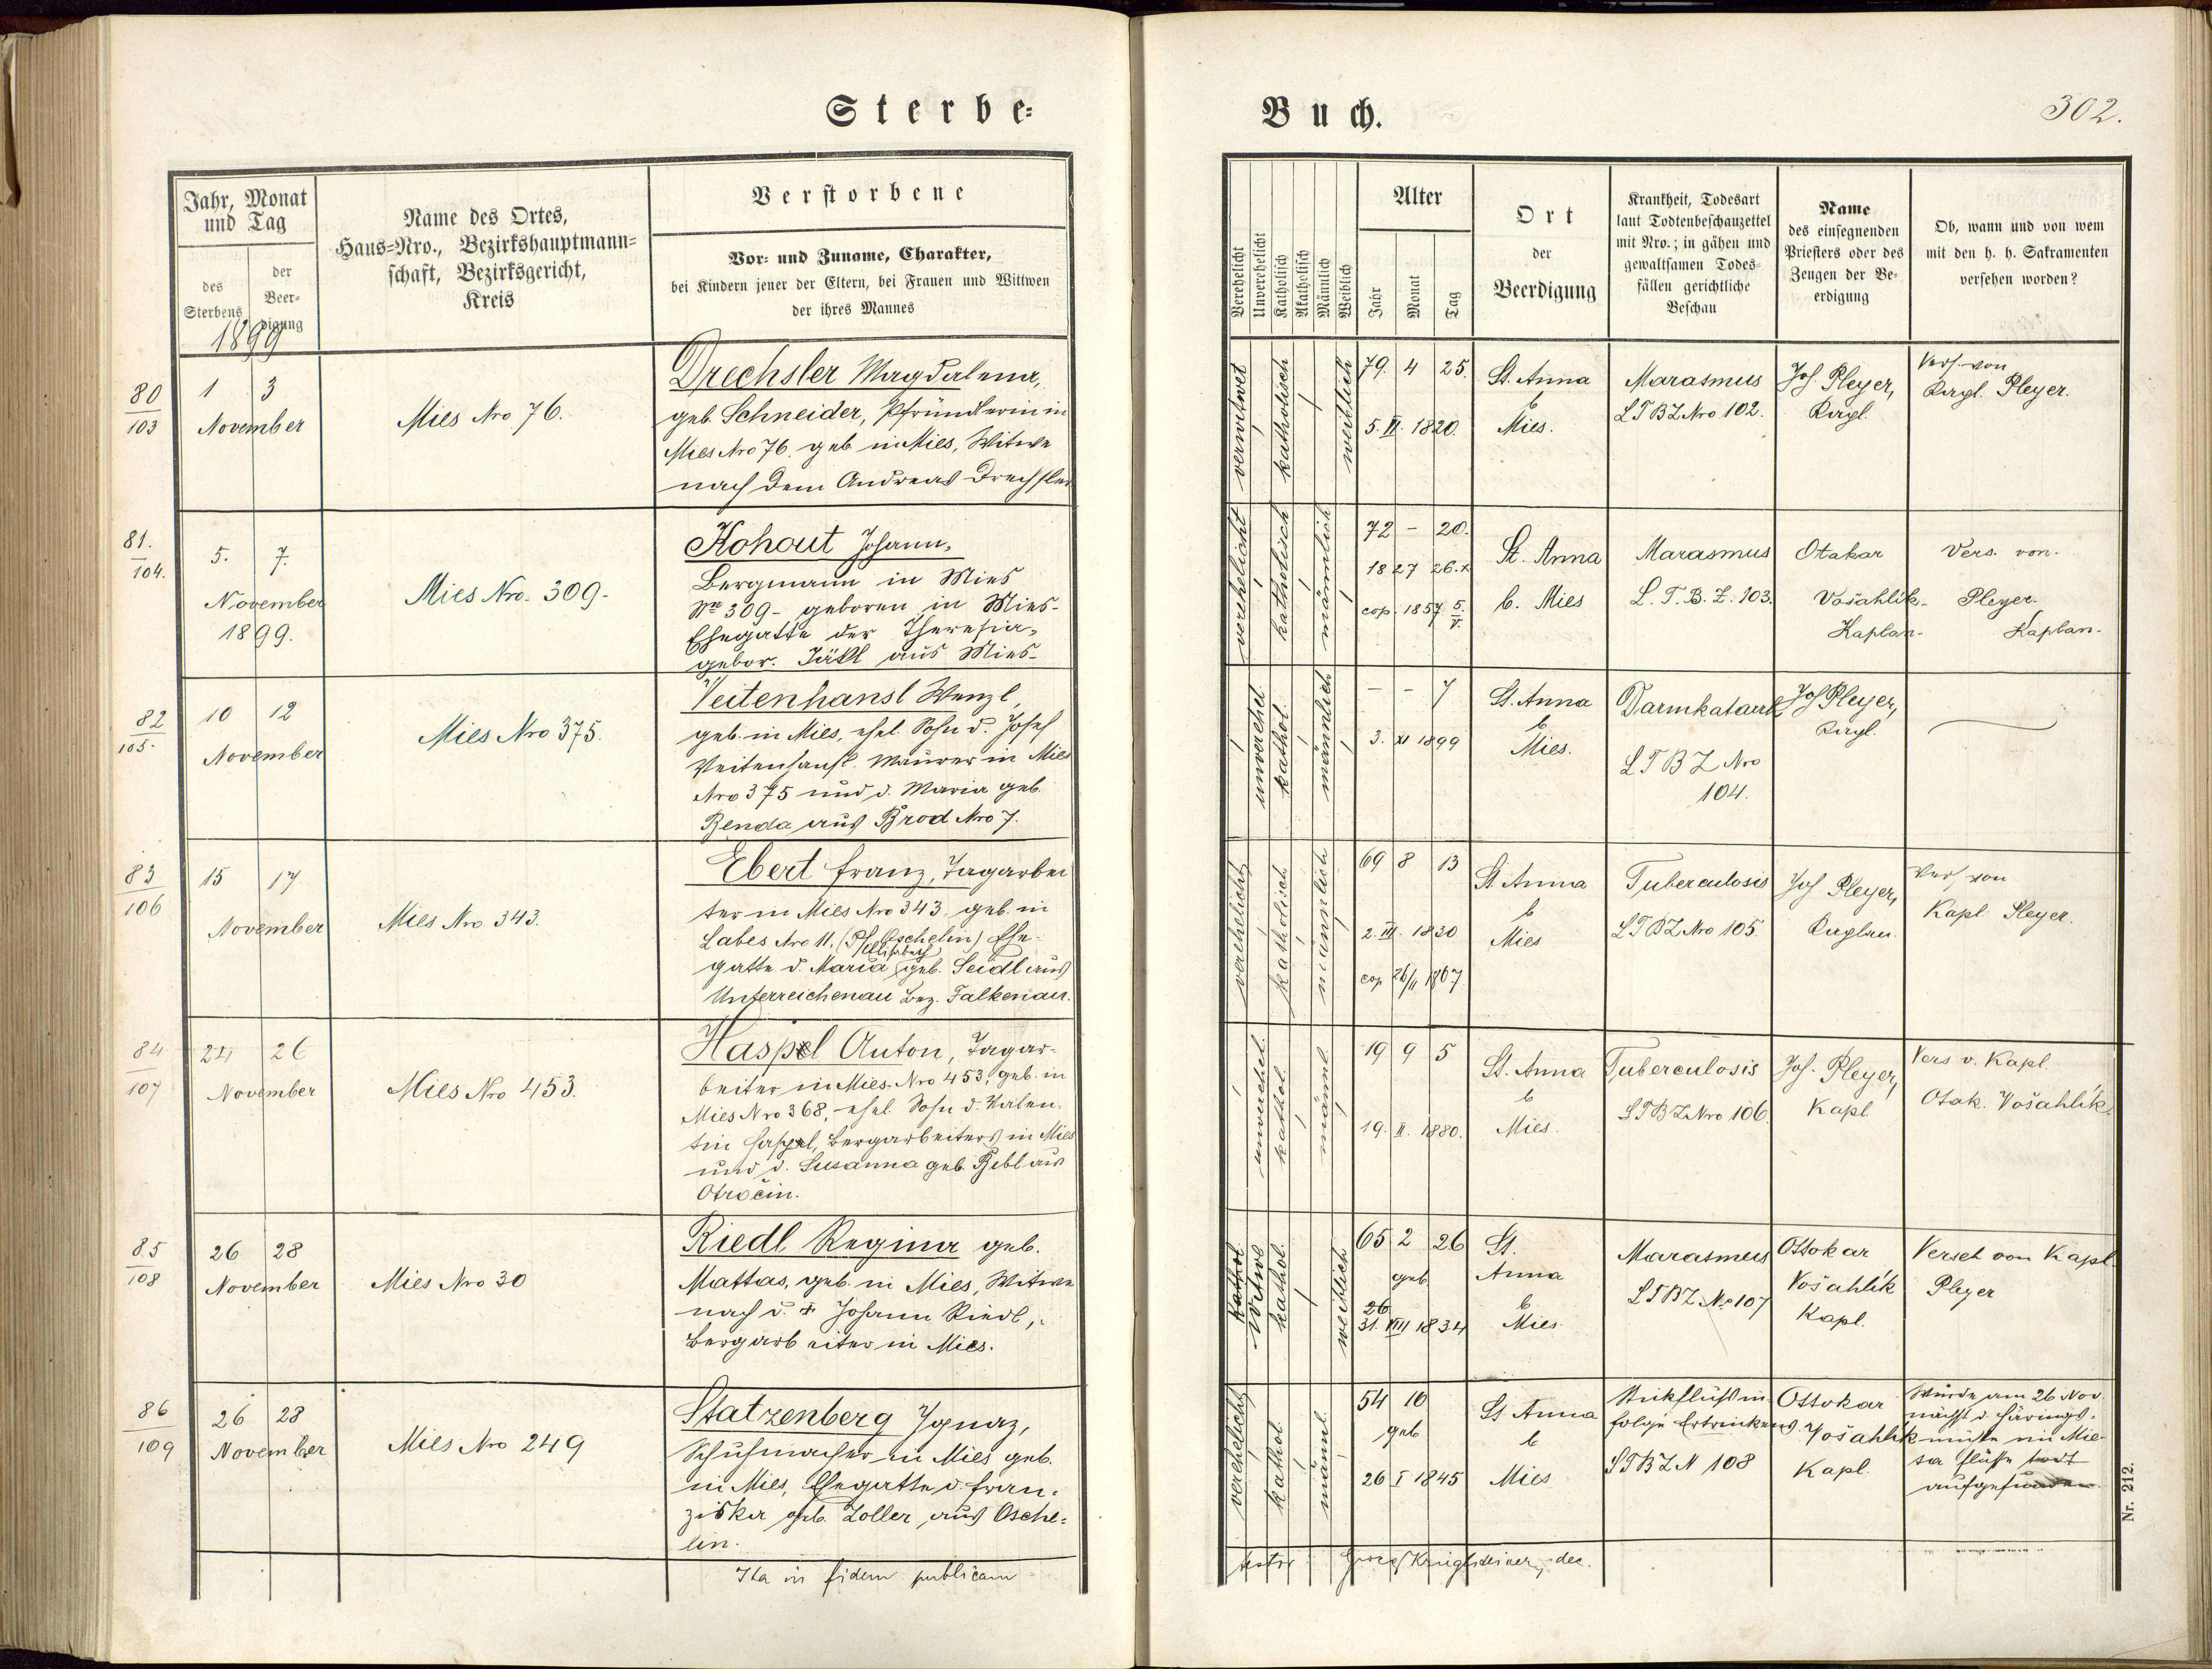 Sterbe-
Buch.
302.
Jahr, Monat
und Tag
des
Sterbens
der
Beer-
digung
1899
Name des Ortes,
Haus-Nro., Bezirkshauptmann-
schaft, Bezirksgericht,
Kreis
Verstorbene
Vor- und Zuname, Charakter,
bei Kindern jener der Eltern, bei Frauen und Wittwen
der ihres Mannes
Verehelicht
Unverehelicht
Katholisch
Akatholisch
Männlich
Weiblich
Alter
Jahr
Monat
Tag
Ort
der
Beerdigung
Krankheit, Todesart
laut Todtenbeschauzettel
mit Nro.; in gähen und
gewaltsamen Todes-
fällen gerichtliche
Beschau
Name
des einsegnenden
Priesters oder des
Zeugen der Be-
erdigung
Ob, wann und von wem
mit den h. h. Sakramenten
versehen worden?
80
103
1 3
November
Mies Nro 76.
Drechsler Magdalena,
geb. Schneider, Pfründlerin in
Mies Nro 76. geb. in Mies, Witwe
nach dem Andreas Drechsler
verwitwet
katholisch
weiblich
79. 4 25.
5. VI. 1820.
St. Anna
b
Mies.
Marasmus
LTBZ Nro 102.
Jos. Pleyer,
Kapl.
Vers. von
Kapl. Pleyer.
81.
104.
5. 7.
November
1899.
Mies Nro. 309.
Kohout Johann,
Bergmann in Mies
Nro 309, geboren in Mies-
Ehegatte der Theresia,
gebor. Jäkl aus Mies-
verehelicht
katholisch
männlich
72 - 20.
1827 26. X
cop. 1857 5./V.
St. Anna
b. Mies
Marasmus
L. T. B. Z. 103.
Otakar
Vošahlík-
Kaplan-
Vers. von-
Pleyer-
Kaplan-
82
105.
10 12
November
Mies Nro 375.
Veitenhansl Wenzl,
geb. in Mies, ehel. Sohn d. Josef
Veitenhansl. Maurer in Mies
Nro 375 und d. Maria geb.
Benda aus Brod Nro 7.
unverehel
kathol.
männlich
- - 7
3. XI 1899
St. Anna
b
Mies.
Darmkatarrh
LTBZ Nro
104.
Jos Pleyer,
Kapl.
83
106
15 17
November
Mies Nro 343.
Ebert Franz, Tagarbei
ter in Mies Nro 343. geb. in
Labes Nro 11. (Pf. Oschelin) Ehe-
Elisabeth
gatte d. Maria geb. Seidl aus
Unterreichenau Bez. Falkenau.
verehelicht
katholisch
männlich
69 8 13
2. III. 1830
cop 26/11 1867
St Anna
b
Mies
Tuberculosis
LTBZ Nro 105.
Jos Pleyer,
Kaplan.
Vers von
Kapl. Pleyer.
84
107
24 26
November
Mies Nro 453.
Haspel Anton, Tagar-
beiter in Mies Nro 453, geb. in
Mies Nro 368, ehel. Sohn d. Valen-
tin Haspel, Bergarbeiters in Mies
und d. Susanna geb. Bibl aus
Otročin.
unverehel.
kathol.
männl
19 9 5
19. II. 1880.
St. Anna
b
Mies.
Tuberculosis
LTBZ Nro 106.
Jos. Pleyer,
Kapl
Vers v. Kapl.
Otak. Vošahlík.
85
108
26 28
November
Mies Nro 30
Riedl Regina geb.
Mattas, geb. in Mies, Witwe
nach d. + Johann Riedl,
Bergarbeiter in Mies.
kathol
Witwe
kathol.
weiblich
65 2 26
geb
26
31. VIII 1834
St.
Anna
b
Mies.
Marasmus
LTBZ No 107
Ottokar
Vošahlík
Kapl.
Verseh von Kapl.
Pleyer
86
109
26 28
November
Mies Nro 249
Statzenberg Ignaz,
Schuhmacher in Mies geb.
in Mies, Ehegatte d. Fran-
ziska geb. Zoller, aus Osche-
lin.
verehelicht
kathol
männl.
54 10
geb
26 I 1845
St Anna
b
Mies
Stickfluß in
folge Ertrinkens.
LTBZ N 108
Ottokar
Vošahlík
Kapl.
Wurde am 26 Nov.
nächst d. Härings-
mühle im Mie-
sa flusse todt
aufgefunden.
Ita in fidem publicam
dec.
Nr. 212.